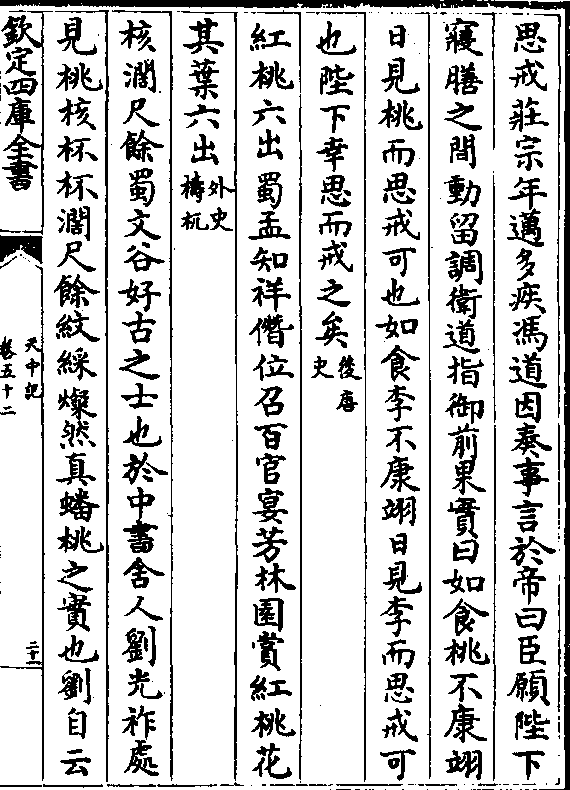 思戒莊宗年邁多疾馮道因奏事言於帝曰臣願陛下
寢膳之間動留調衛道指御前果實曰如食桃不康翊
日見桃而思戒可也如食李不康翊日見李而思戒可
也陛下幸思而戒之矣後唐史
紅桃六出蜀孟知祥僭位召百官宴芳林園賞紅桃花
其葉六出外史檮杌
核濶尺餘蜀文谷好古之士也於中書舍人劉光祚處
見桃核杯杯濶尺餘紋綵燦然真蟠桃之實也劉自云
欽定四庫全書
天中記
卷五十二
二十二